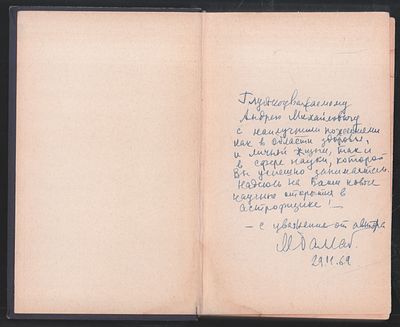 Глубокоуважаемому
Андрею Михайловичу
с наилучшими пожеланиями
как в области здоровья,
и личной жизни, так и
в сфере науки, которой
Вы успешно занимаетесь.
на Ваши новые
научные открытия в
астрофизике! —
— с уважением от автора
29.11.69